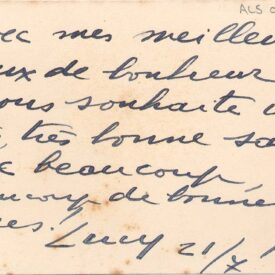 ALS
ec mes meilleu
ux de bonheur
ous souhaite
très bonne sa
beaucoup
ucoup de bonne
es! Lucy 21/7